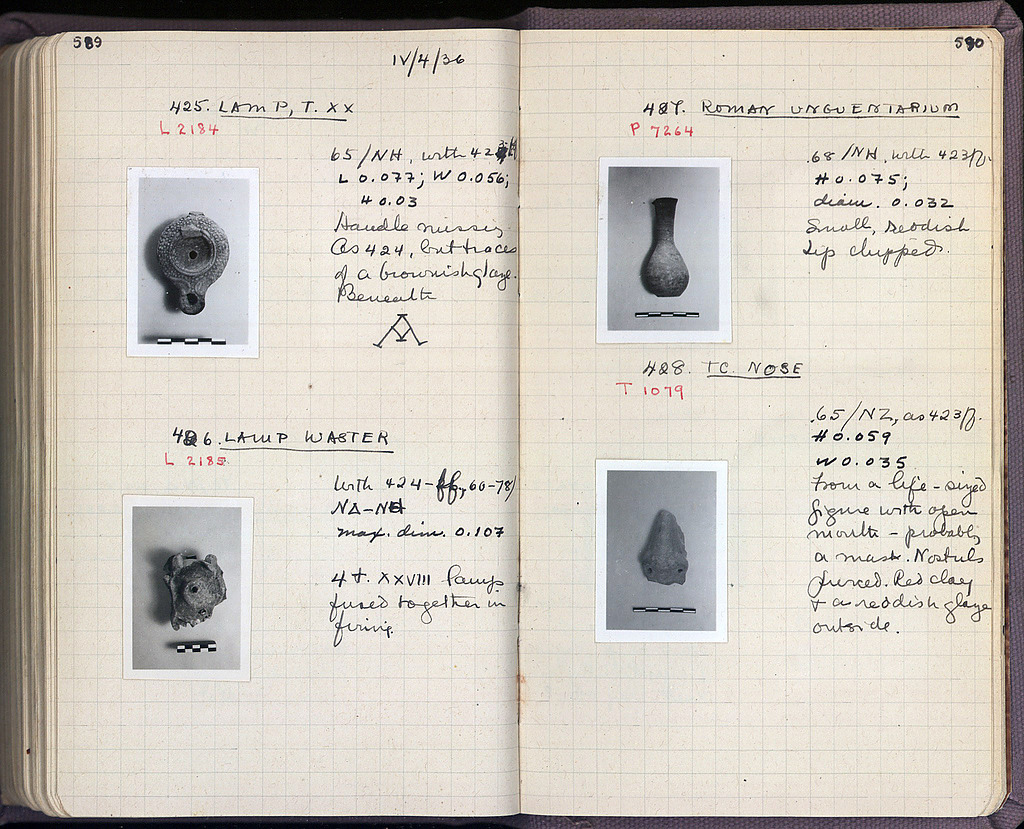 589
IV/4/36
425. LAMP, T. XX
L 2184
65/NH, with 42
L 0.077; W 0.056;
H 0.03
Handle missing
As 424, but traces
of a brownish glaze.
Beneath
426. LAMP WASTER
L 2185
With 424-ff, 60-78/
ΝΔ-ΝΗ
max. dim. 0.107
4 t. XXVIII lamps
fused together in
firing.
590
427. ROMAN UNGUENTARIUM
P 7264
.68/NH, with 423ff.
H 0.075;
diam. 0.032
Small, reddish
Lip chipped.
428. TC. NOSE
T 1079
.65/NZ, as 423ff.
H 0.059
W 0.035
From a life-sized
figure with open
mouth - probably
a mask. Nostrils
pierced. Red clay
+ a reddish glaze
outside.